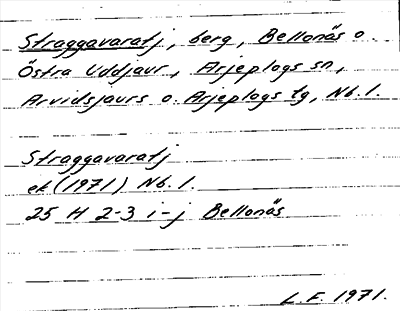 Straggavaratj, berg, Bellonäs o.
Östra Uddjaur, Arjeplogs sn,
Arvidsjaurs o. Arjeplogs tg, Nb. l.
Straggavaratj
ek (1971) Nb. l.
25 H 2-3 i-j Bellonäs
L.F. 1971.